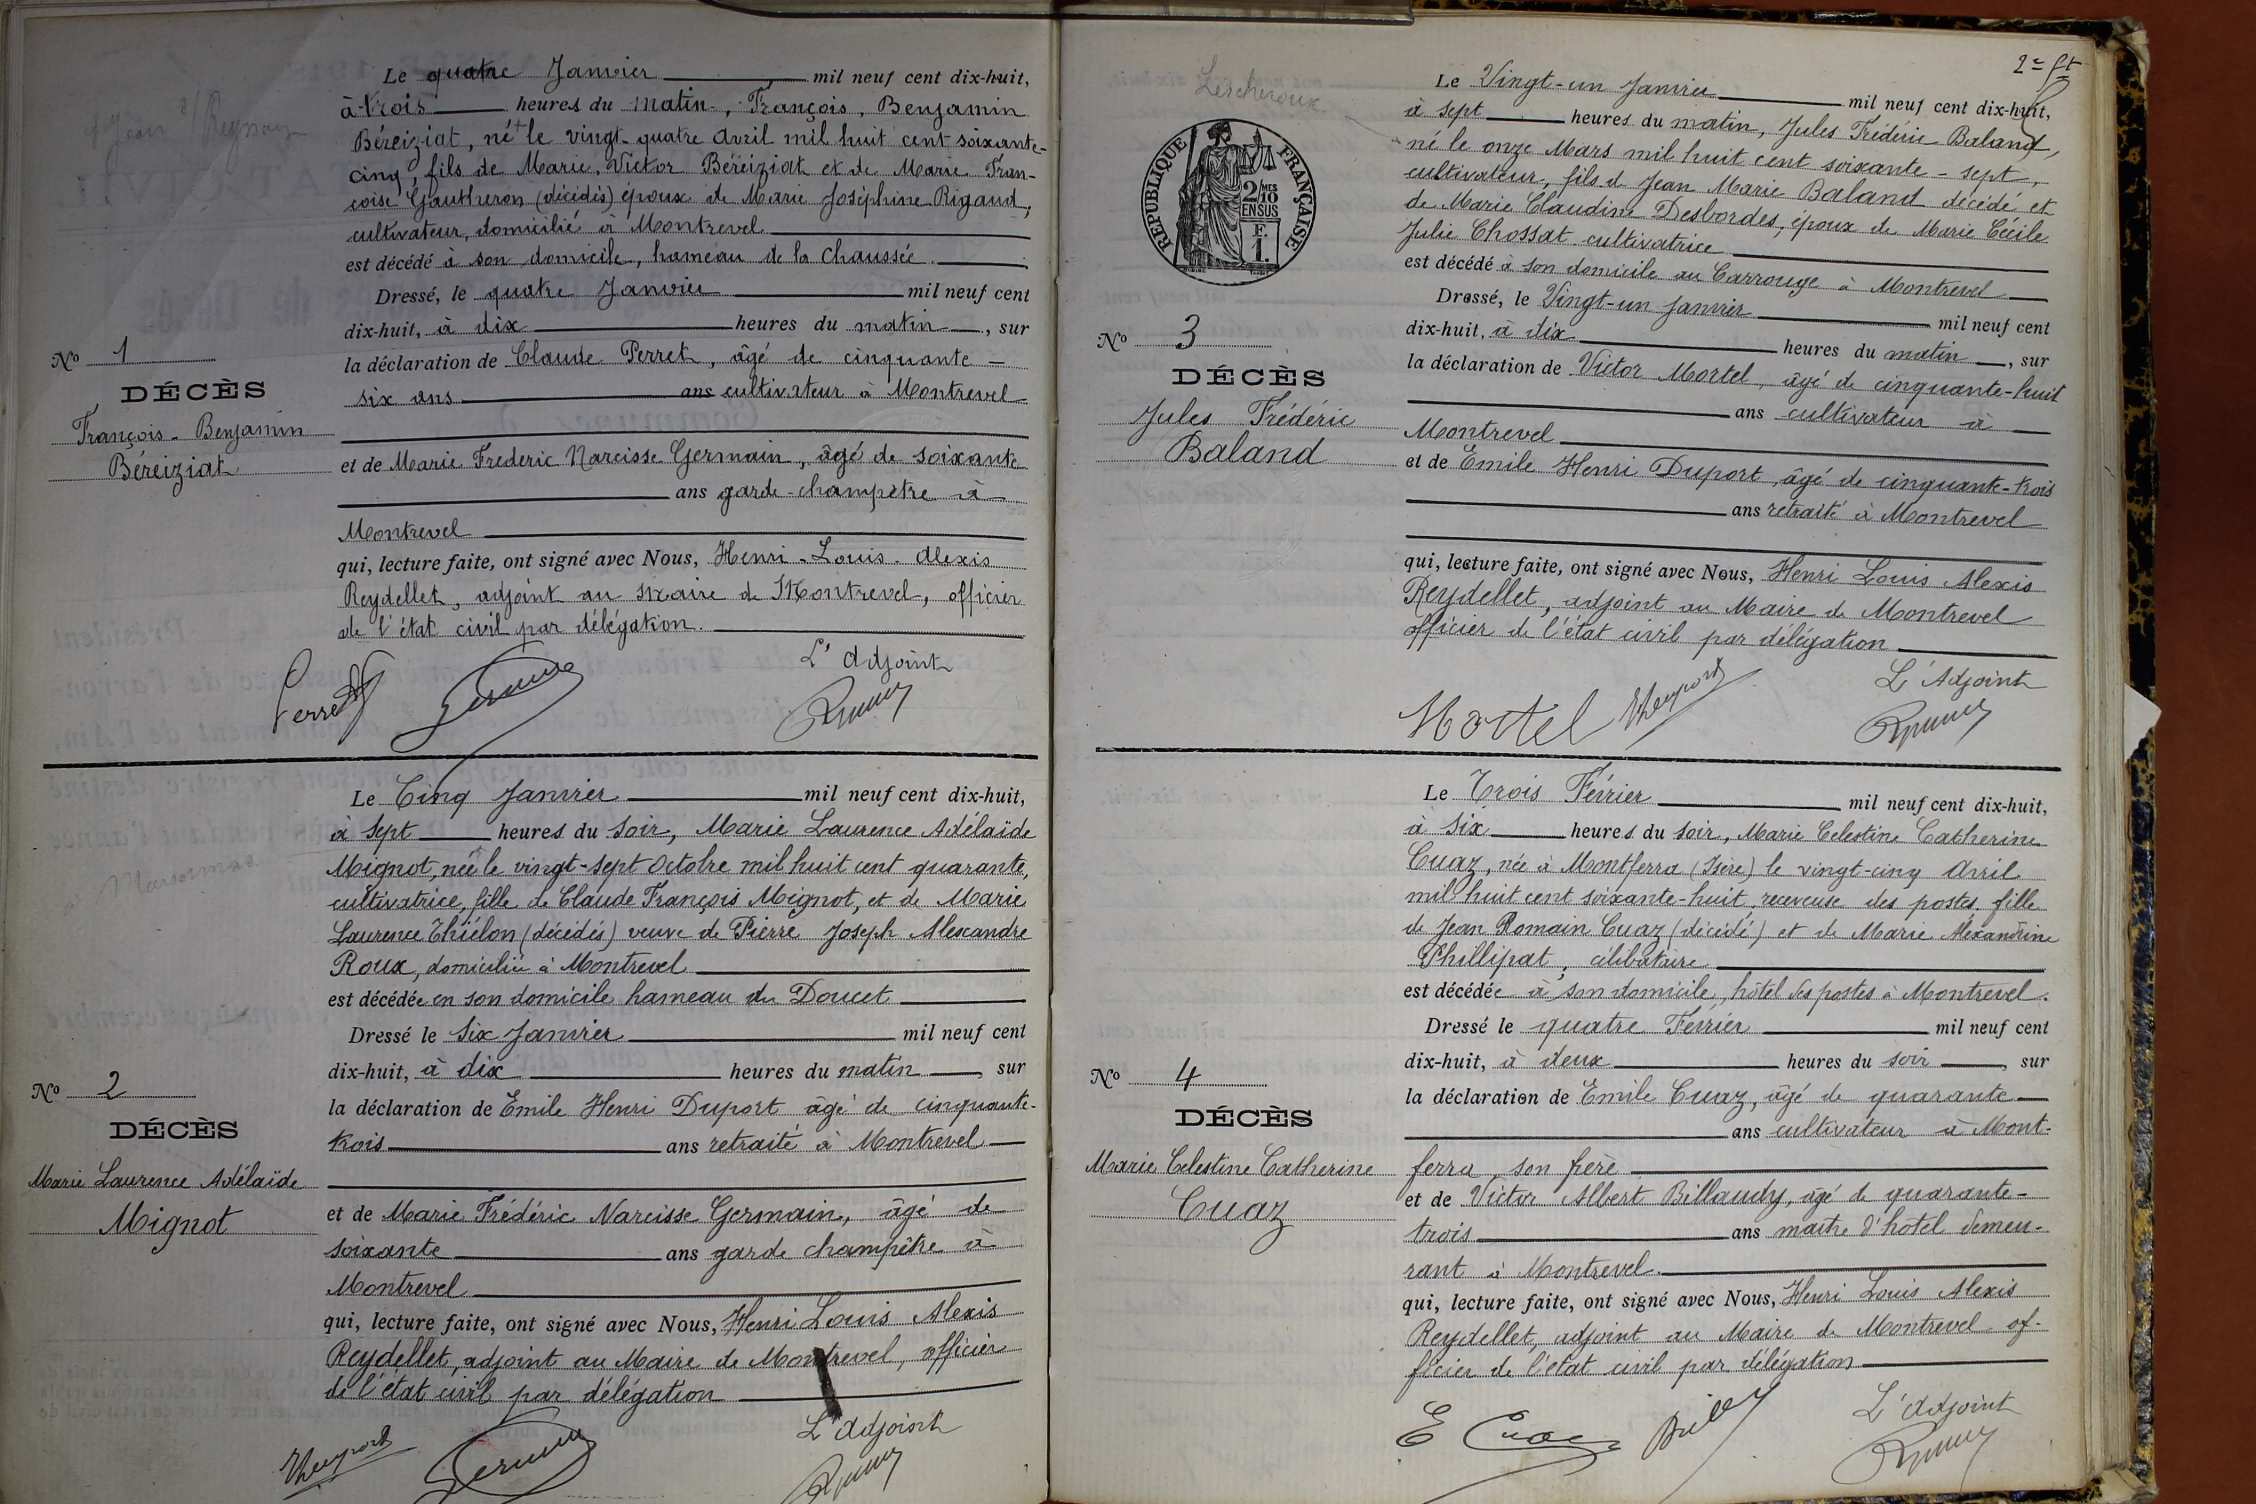 Le quatre Janvier mil neuf cent dix-huit,
à trois heures du matin, François, Benjamin
Béreiziat, né le vingt-quatre Avril mil huit cent soixante-
cinq, fils de Marie, Victor Béreiziat et de Marie Fran-
çoise Gautheron (décédés) époux de Marie Joséphine Rigaud,
cultivateur, domicilié à Montrevel
est décédé à son domicile, hameau de la Chaussée.
Dressé, le quatre Janvier mil neuf cent
dix-huit, à dix heures du matin, sur
la déclaration de Claude Perret, âgé de cinquante-
six ans ans cultivateur à Montrevel
et de Marie Frederic Narcisse Germain, âgé de soixante
ans garde-champêtre à
Montrevel
qui, lecture faite, ont signé avec Nous, Henri-Louis-Alexis
Reydellet, adjoint au Maire de Montrevel, officier
de l'état civil par délégation.
L'Adjoint
Perret Germain
No 1
DÉCÈS
François-Benjamin
Béreiziat
Le Cinq Janvier mil neuf cent dix-huit,
à sept heures du soir, Marie Laurence Adélaïde
Mignot, née le vingt-sept Octobre mil huit cent quarante,
cultivatrice, fille de Claude François Mignot, et de Marie
Laurence Thiélon (décédés) veuve de Pierre Joseph Alexandre
Roux, domiciliée à Montrevel
est décédée en son domicile hameau du Doucet
Dressé le Six Janvier mil neuf cent
dix-huit, à dix heures du matin, sur
la déclaration de Emile Henri Duport âgé de cinquante-
trois ans retraité à Montrevel
et de Marie Frédéric Narcisse Germain, âgé de
soixante ans garde champêtre à
Montrevel
qui, lecture faite, ont signé avec Nous, Henri Louis Alexis
Reydellet, adjoint au Maire de Montrevel, officier
de l'état civil par délégation
L'Adjoint
Hduport Germain
No 2
DÉCÈS
Marie Laurence Adélaïde
Mignot
2e ft
Lescheroux
RÉPUBLIQUE FRANÇAISE
2/10MES
EN SUS
F.
1.
Le Vingt-un Janvier mil neuf cent dix-huit,
à sept heures du matin, Jules Frédéric Baland,
né le onze Mars mil huit cent soixante-sept,
cultivateur, fils de Jean Marie Baland décédé et
de Marie Claudine Desbordes, époux de Marie Cécile
Julie Chossat cultivatrice
est décédé à son domicile au Carrouge à Montrevel
Dressé, le Vingt-un Janvier mil neuf cent
dix-huit, à dix heures du matin, sur
la déclaration de Victor Mortel, âgé de cinquante-huit
ans cultivateur à
Montrevel
et de Emile Henri Duport, âgé de cinquante-trois
ans retraité à Montrevel
qui, lecture faite, ont signé avec Nous, Henri Louis Alexis
Reydellet, adjoint au Maire de Montrevel
officier de l'état civil par délégation
L'Adjoint
Mortel Hduport
No 3
DÉCÈS
Jules Frédéric
Baland
Le Trois Février mil neuf cent dix-huit,
à six heures du soir, Marie Celestine Catherine
Cuaz, née à Montferra (Isère) le vingt-cinq Avril
mil huit cent soixante-huit, receveuse des postes, fille
de Jean Romain Cuaz (décédé) et de Marie Alexandrine
Phillipat, célibataire
est décédée à son domicile, hôtel des postes à Montrevel.
Dressé le quatre Février mil neuf cent
dix-huit, à deux heures du soir, sur
la déclaration de Emile Cuaz, âgé de quarante
ans cultivateur à Mont-
ferra, son frère
et de Victor Albert Billaudy, âgé de quarante-
trois ans maitre d'hotel demeu-
rant à Montrevel.
qui, lecture faite, ont signé avec Nous, Henri Louis Alexis
Reydellet, adjoint au Maire de Montrevel of-
ficier de l'état civil par délégation
L'Adjoint
E Cuaz
No 4
DÉCÈS
Marie Celestine Catherine
Cuaz